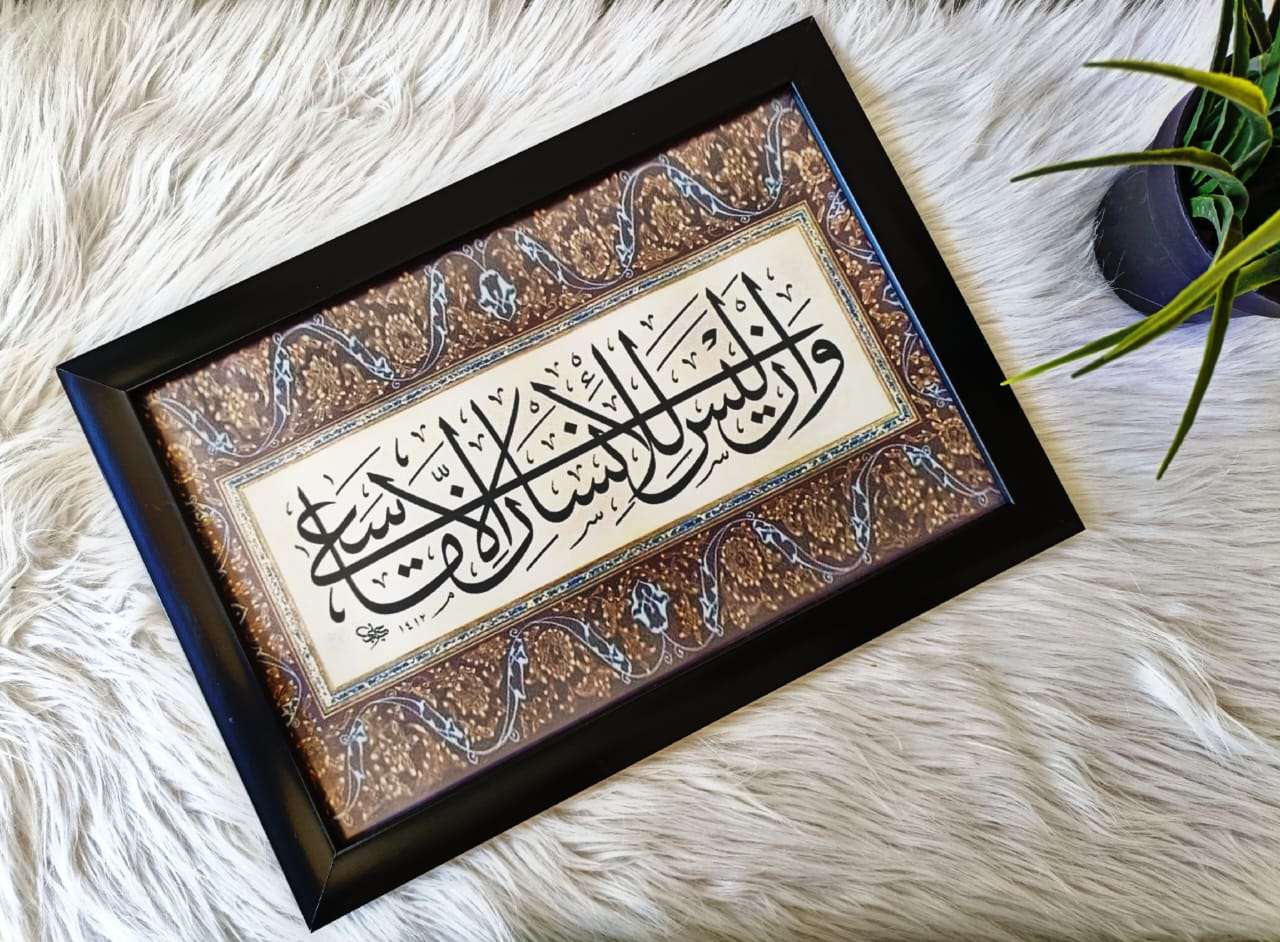 وَاَنْ لَيْسَ لِلْاِنْسَانِ اِلَّا مَا سَعٰى
١٤١٢